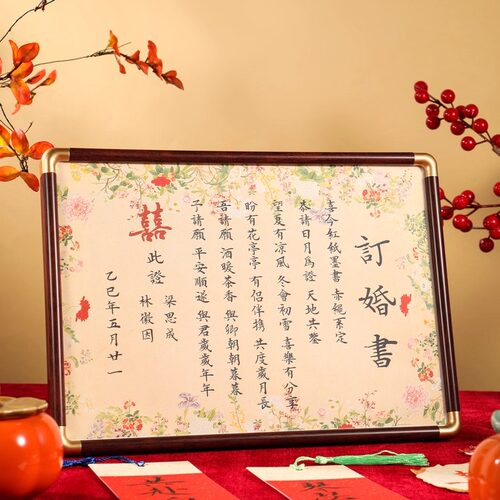 訂婚書
喜今紅紙墨書 赤繩系定
恭請日月為證 天地共鑒
望夏有涼風 冬會初雪 喜樂有分享
盼有花亭亭 有侶伴携 共度歲月長
吾請願 酒暖茶香 與卿朝朝暮暮
予請願 平安順遂 與君歲歲年年
囍
此證
梁思成
林徽因
乙巳年五月廿一
囍